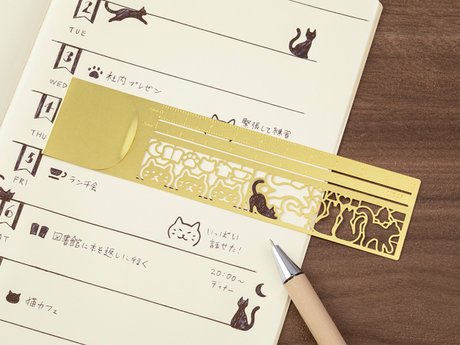 2
TUE
3
WED
社内プレゼン
4
THU
緊張して練習
5
FRI
ランチ会
6
図書館に本を返しに行く
いっぱい
話せた!
20:00〜
ディナー
猫カフェ